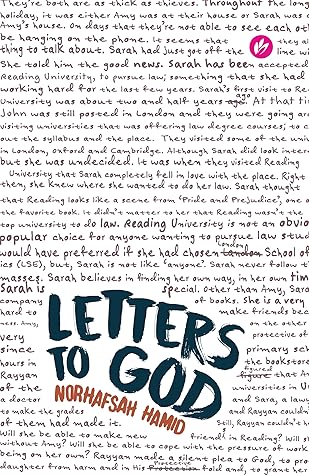 They're both are as thick as thieves. Throughout the long
holiday, it was either Amy was at their house or Sarah was
Amy's house. On days that they're not able to see each oth
be hanging on the phone. It seems that they al
thing to talk about. Sarah had just got off the line w
She told him the good news. Sarah has been accepted
Reading University, to pursue law; something that she had
working hard for the last few years. Sarah's first visit to Re
University was about two and half years ago. At that ti
John was still posted in London and they were going ar
visiting universities that was offering law degree courses; to c
out the syllabus and the place. They visited some of the uni
in London, Oxford and Cambridge. Although Sarah did look inter
but she was undecided. It was when they visited Reading
University that Sarah completely fell in love with the place. Right
then, she knew where she wanted to do her law. Sarah thought
that Reading looks like a scene from 'Pride and Prejudice', one o
the favorite book. It didn't matter to her that Reading wasn't the
top university to do law. Reading University is not an obvio
popular choice for anyone wanting to pursue law stud
would have preferred if she had chosen London School of
ics (LSE), but, Sarah is not like 'anyone'. Sarah never follow t
masses. Sarah believes in finding her own way, in her own tim
Sarah is special. Other than Amy, Sara
company of books. She is a very
hard to make friends bec
ness. Amy, on the other
very protective of
since primary sch
hours in the bookstore
Rayyan figured that A
of the universities in U
a doctor and Sara, a lawy
to make the grades and Rayyan couldn't
of them had made it. Still, Rayyan couldn't h
Will she be able to make new friends in Reading? Will s
without Amy? Will she be able to cope with the pressure of work
being on her own? Rayyan made a silent plea to God, to pro
daughter from harm and in His Protective fold and, to let her
LETTERS
TO GOD
NORHAFSAH HAMID